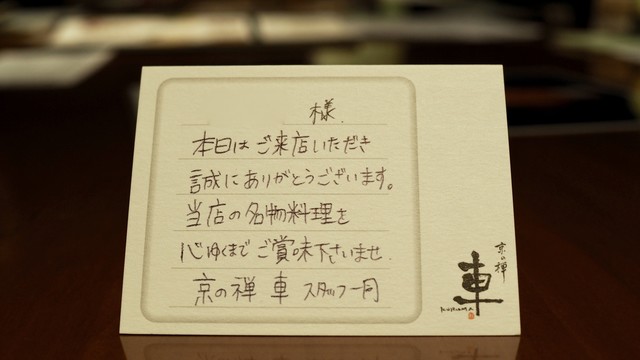 様
本日はご来店いただき
誠にありがとうございます。
当店の名物料理を
心ゆくまでご賞味下さいませ.
京の禅 車 スタッフ一同
京の禅
車
KURUMA